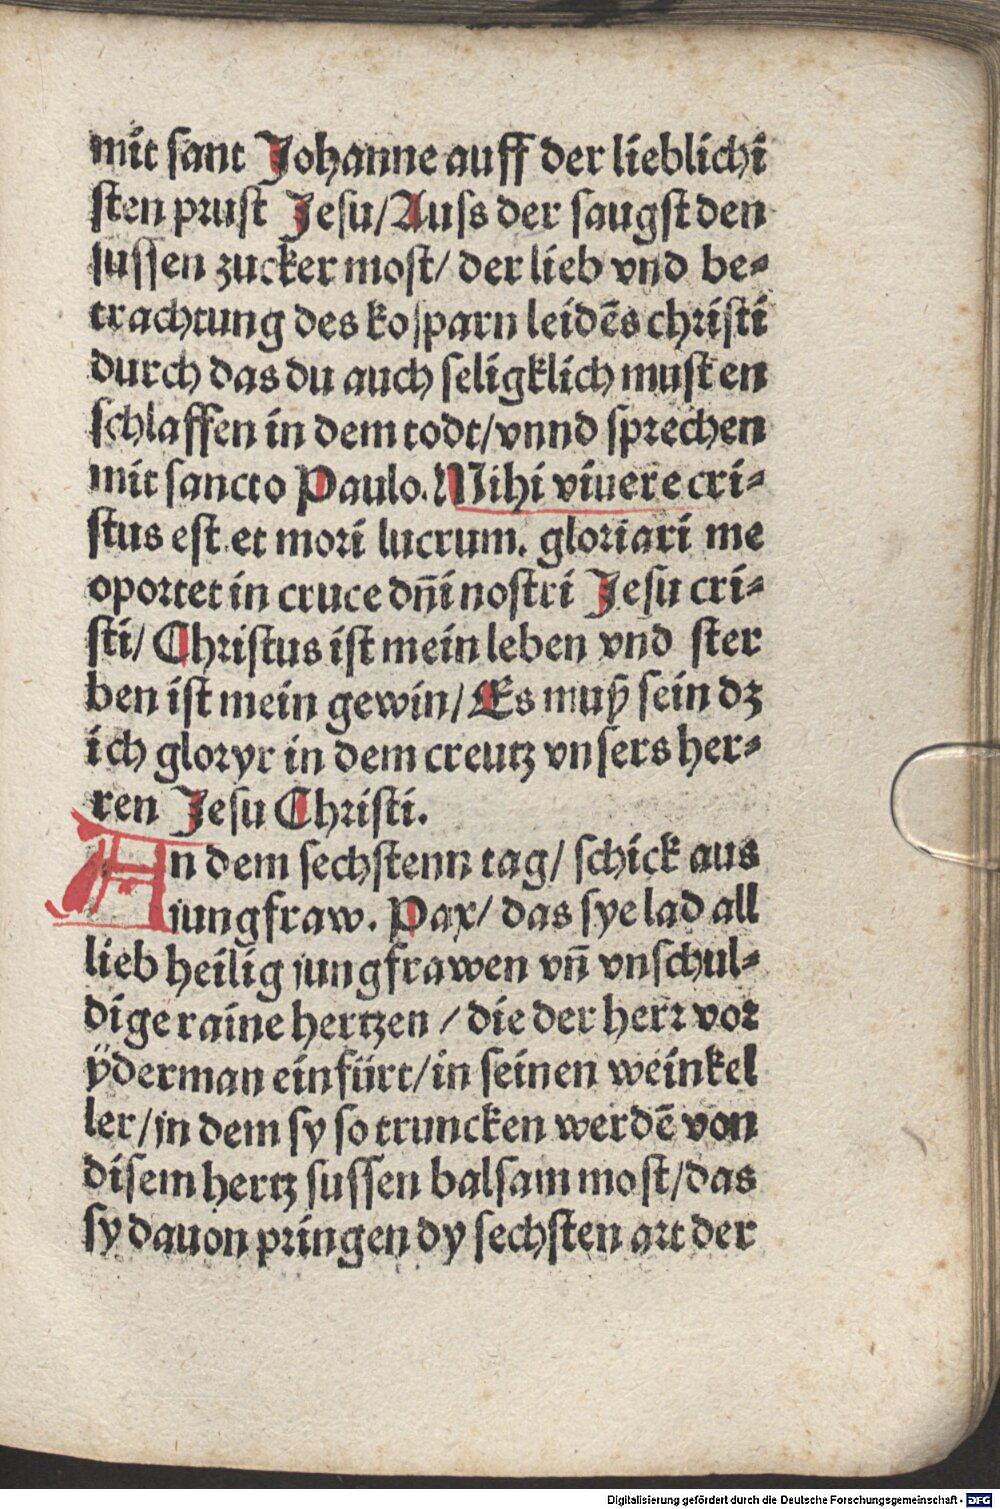 mit sant Johanne auff der lieblichi
sten prust Jesu/ Auss der saugst den
sussen zucker most/ der lieb vnd be-
trachtung des kosparn leidēs christi
durch das du auch seligklich must en
schlaffen in dem todt/ vnnd sprechen
mit sancto Paulo. Mihi viuere cri-
stus est et mori lucrum. gloriari me
oportet in cruce dn̄i nostri Jesu cri-
sti/ Christus ist mein leben vnd ster
ben ist mein gewin/ Es muß sein dz
ich gloryr in dem creutz vnsers her-
ren Jesu Christi.
An dem sechstenn tag/ schick aus
jungfraw. Pax/ das sye lad all
lieb heilig jungfrawen vn̄ vnschul-
dige raine hertzen / die der herr vor
ÿderman einfürt/ in seinen weinkel
ler/ in dem sy so truncken werdē von
disem hertz sussen balsam most/ das
sy dauon pringen dy sechsten art der
Digitalisierung gefördert durch die Deutsche Forschungsgemeinschaft - DFG